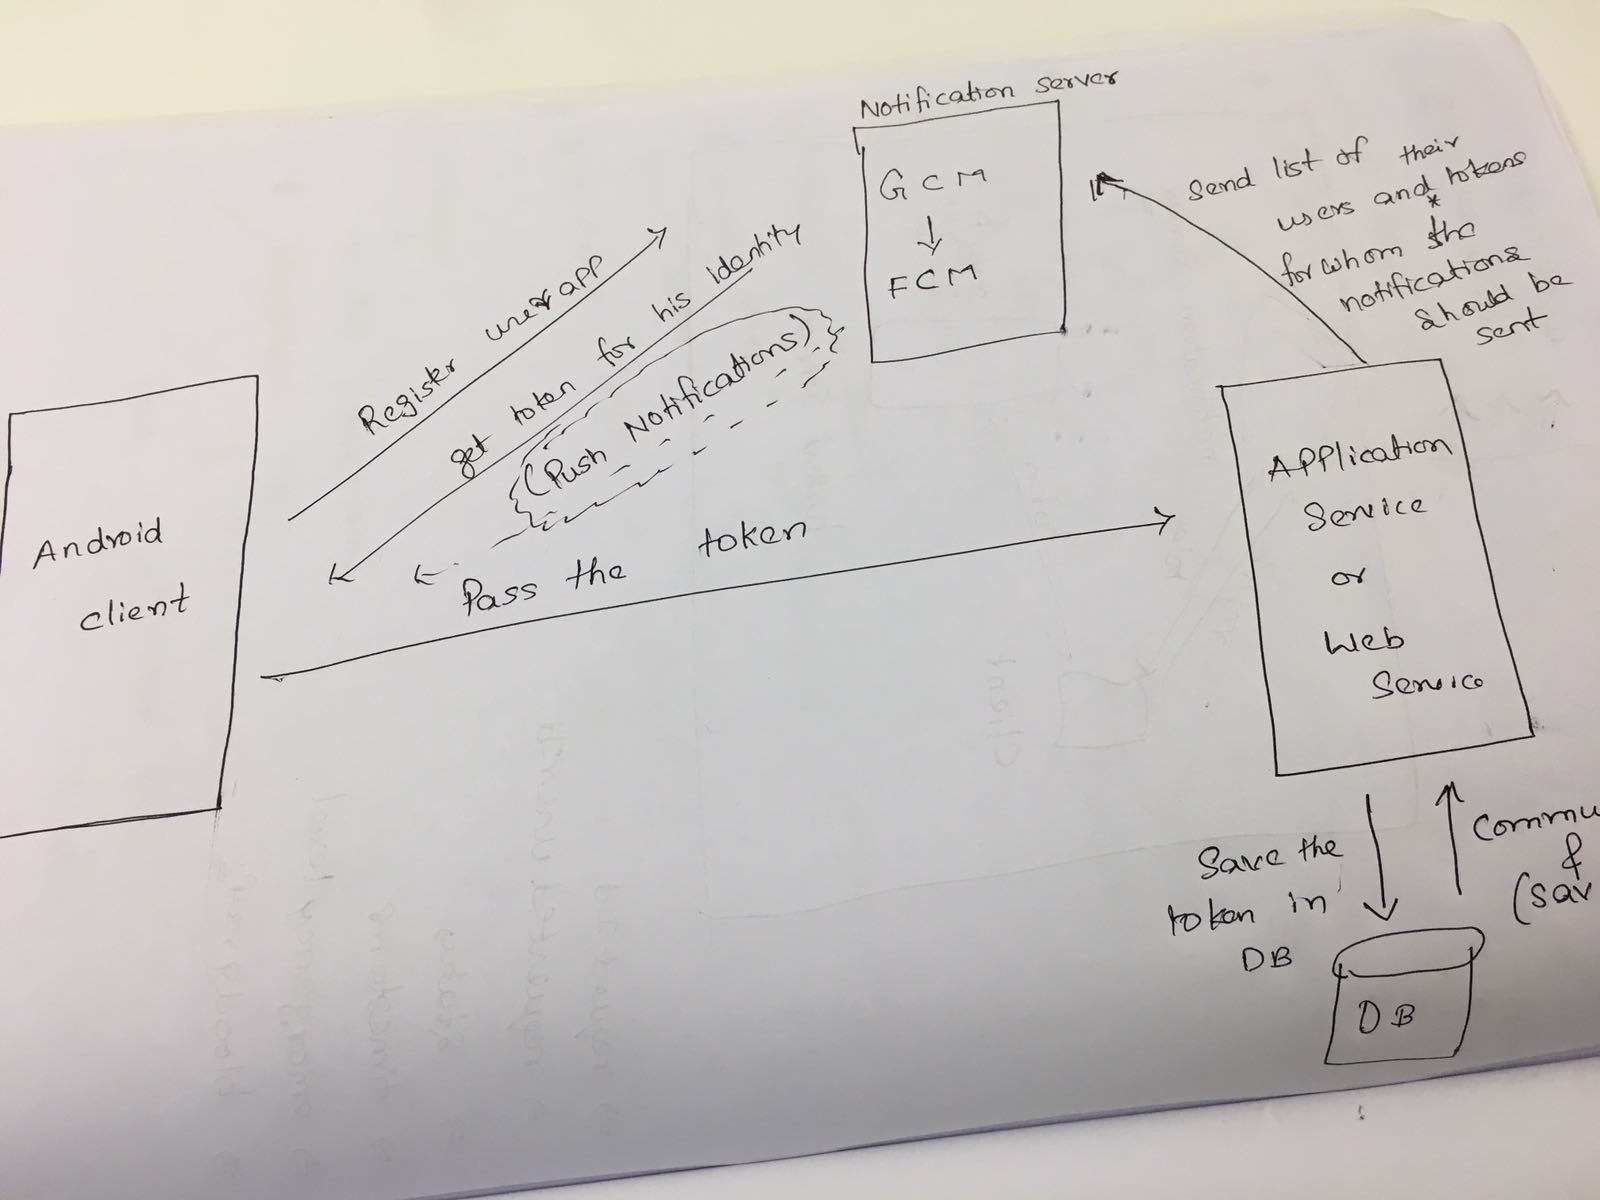 Notification Server
GCM
FCM
Send list of their
users and tokens
*
for whom the
notifications
should be
sent
Register user app
get token for his identity
(Push Notifications)
Pass the token
Android
client
Application
Service
or
Web
Service
Save the
token in
DB
DB
&